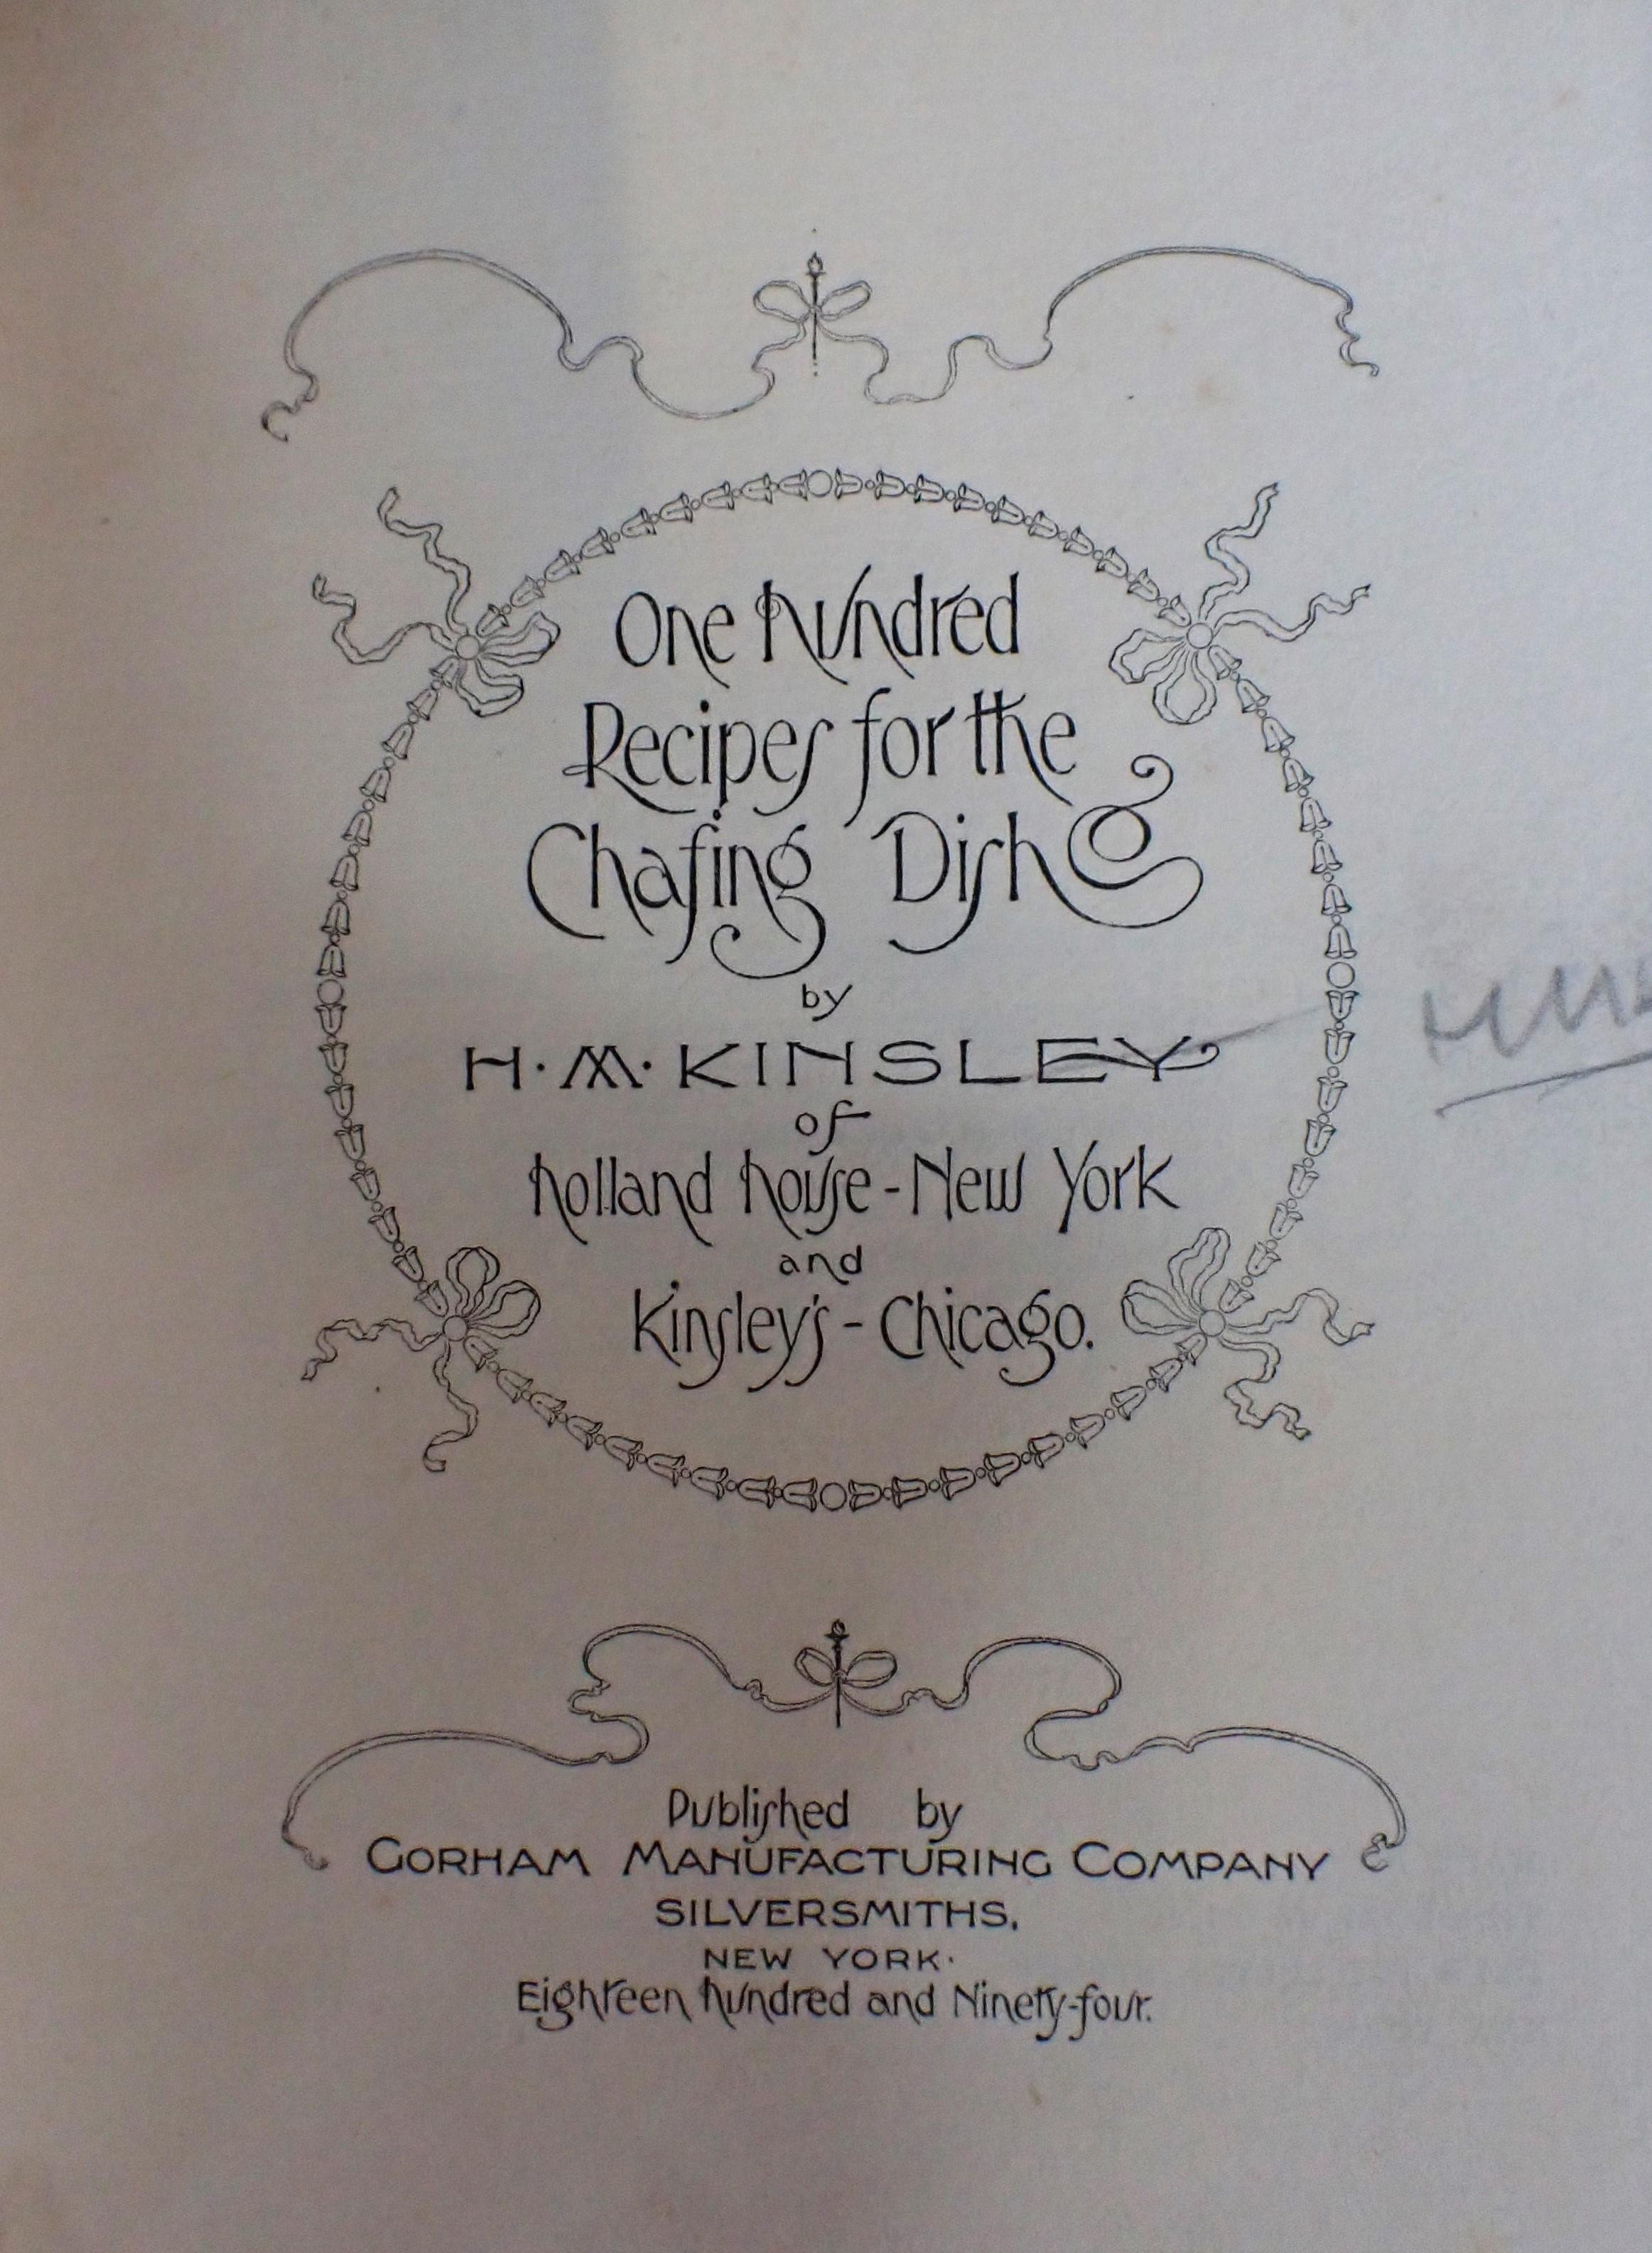 One Hundred
Recipes for the
Chafing Dish
by
H. M. KINSLEY
of
Holland House - New York
and
Kinsley's - Chicago.
Published by
GORHAM MANUFACTURING COMPANY
SILVERSMITHS,
NEW YORK.
Eighteen Hundred and Ninety-four.